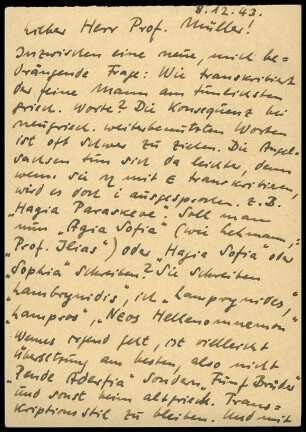 8.12.43.
Lieber Herr Prof. Müller!
Inzwischen eine neue, mich be-
drängende Frage: Wie transkribiert
der feine Mann am tunlichsten
griech. Worte? Die Konsequenz bei
neugriech. weiterbenützten Worten
ist oft schwer zu ziehen. Die Angel-
sachsen tun sich da leichter, denn
wenn sie η mit E transkribieren,
wird es doch i ausgesprochen. z. B.
„Hagia Paraskeve". Soll man
nun „Agia Sofia" (wie
„Prof. Ilias") oder „Hagia Sofia" oder
„Sophia" schreiben? Sie schreiben
„Lambrynidis", ich „Lamprynides,"
„Lampros", „Neos Hellenomnemon"
Wenns irgend geht, ist vielleicht
Übersetzung am besten, also nicht
„Pende Aderfia" sondern „Fünf Brüder"
und sonst beim altgriech. Trans=
kriptionsstil zu bleiben. Und mit